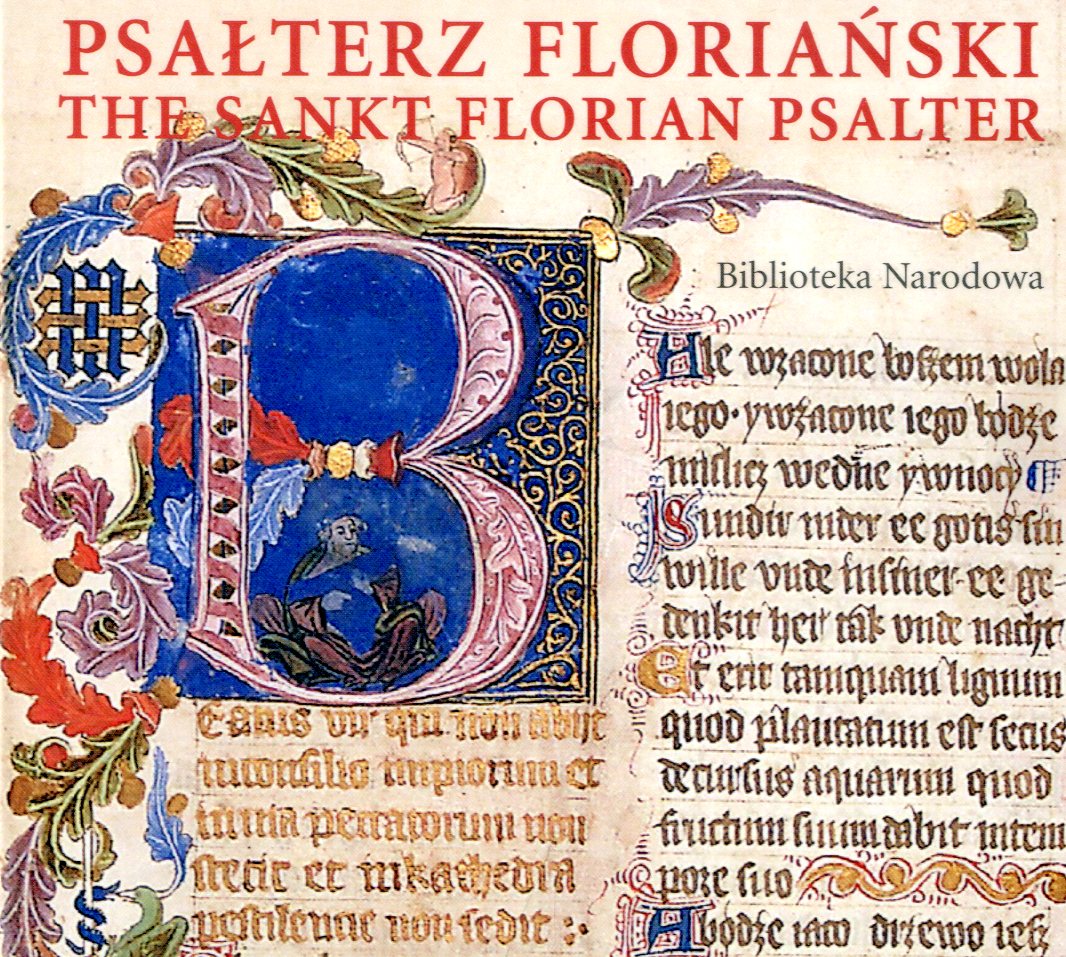 PSAŁTERZ FLORIAŃSKI
THE SANKT FLORIAN PSALTER
Biblioteka Narodowa
Beatus vir qui non abijt
in consilio impiorum et
in via peccatorum non
stetit et in kathedra
pestilencie non sedit :·
Ale wzacone boszem wola
iego · ywzacone iego bødze
mislicz wedne ywnocy
Sundir inder ee gotis sin
wille vnde in siner ee ge-
denkit her tak vnde nacht
Et erit tamquam lignum
quod plantatum est secus
decursus aquarum quod
fructum suum dabit in tem
pore suo
A bødze iaco drzewo iesz